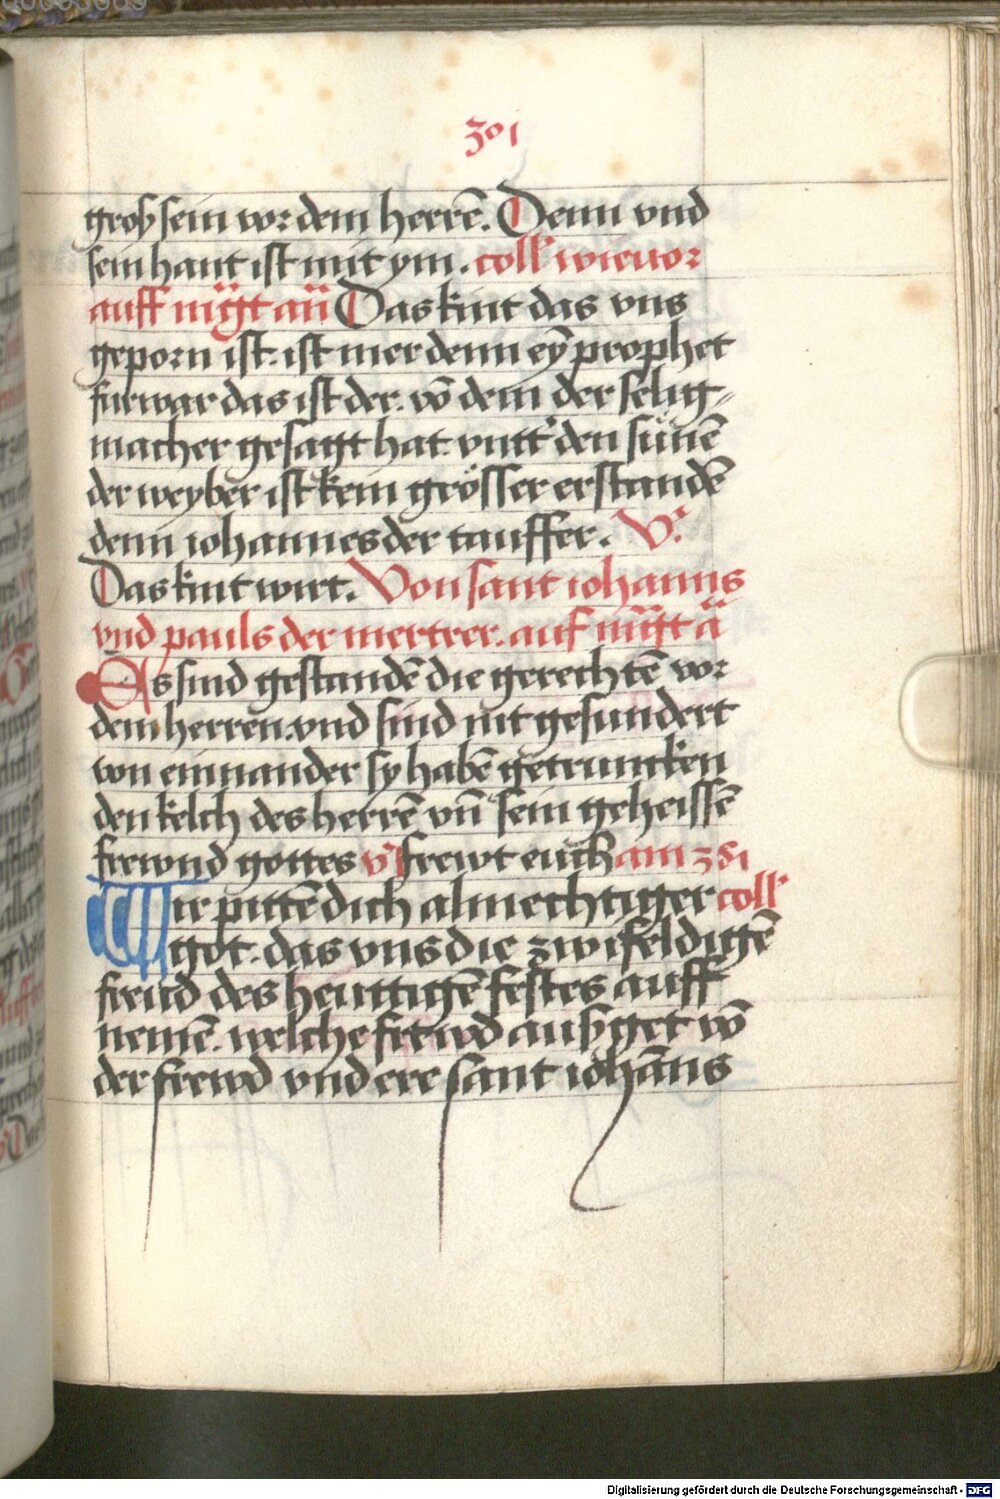 301
groß sein vor dem herrē. Denn vnd
sein hant ist mit ym. coll' wie vor
auff
Das kint das vns
geporn ist. ist mer denn eȳ prophet
furwar das ist der. vō dem der selig⸗
macher gesagt hat. vntt' den sünē
der weyber ist kein grösser erstandē
denn iohannes der tauffer. V'.
Das kint wirt. Von sant iohanns
vnd pauls der mertrer. auf
Es sind gestandē die gerechtē vor
dem herren. vnd sind nit gesundert
von einnander sy habē getruncken
den kelch des herrē vn̄ sein geheissē
frewnd gottes v' frewt euch am 381
Wir pittē dich almechtiger coll'
got. das vns die zwifeldigē
freud des heuttigē festes auff
nemē. welche frewd außget vō
der frewd vnd ere sant iohān̄s
Digitalisierung gefördert durch die Deutsche Forschungsgemeinschaft - DFG